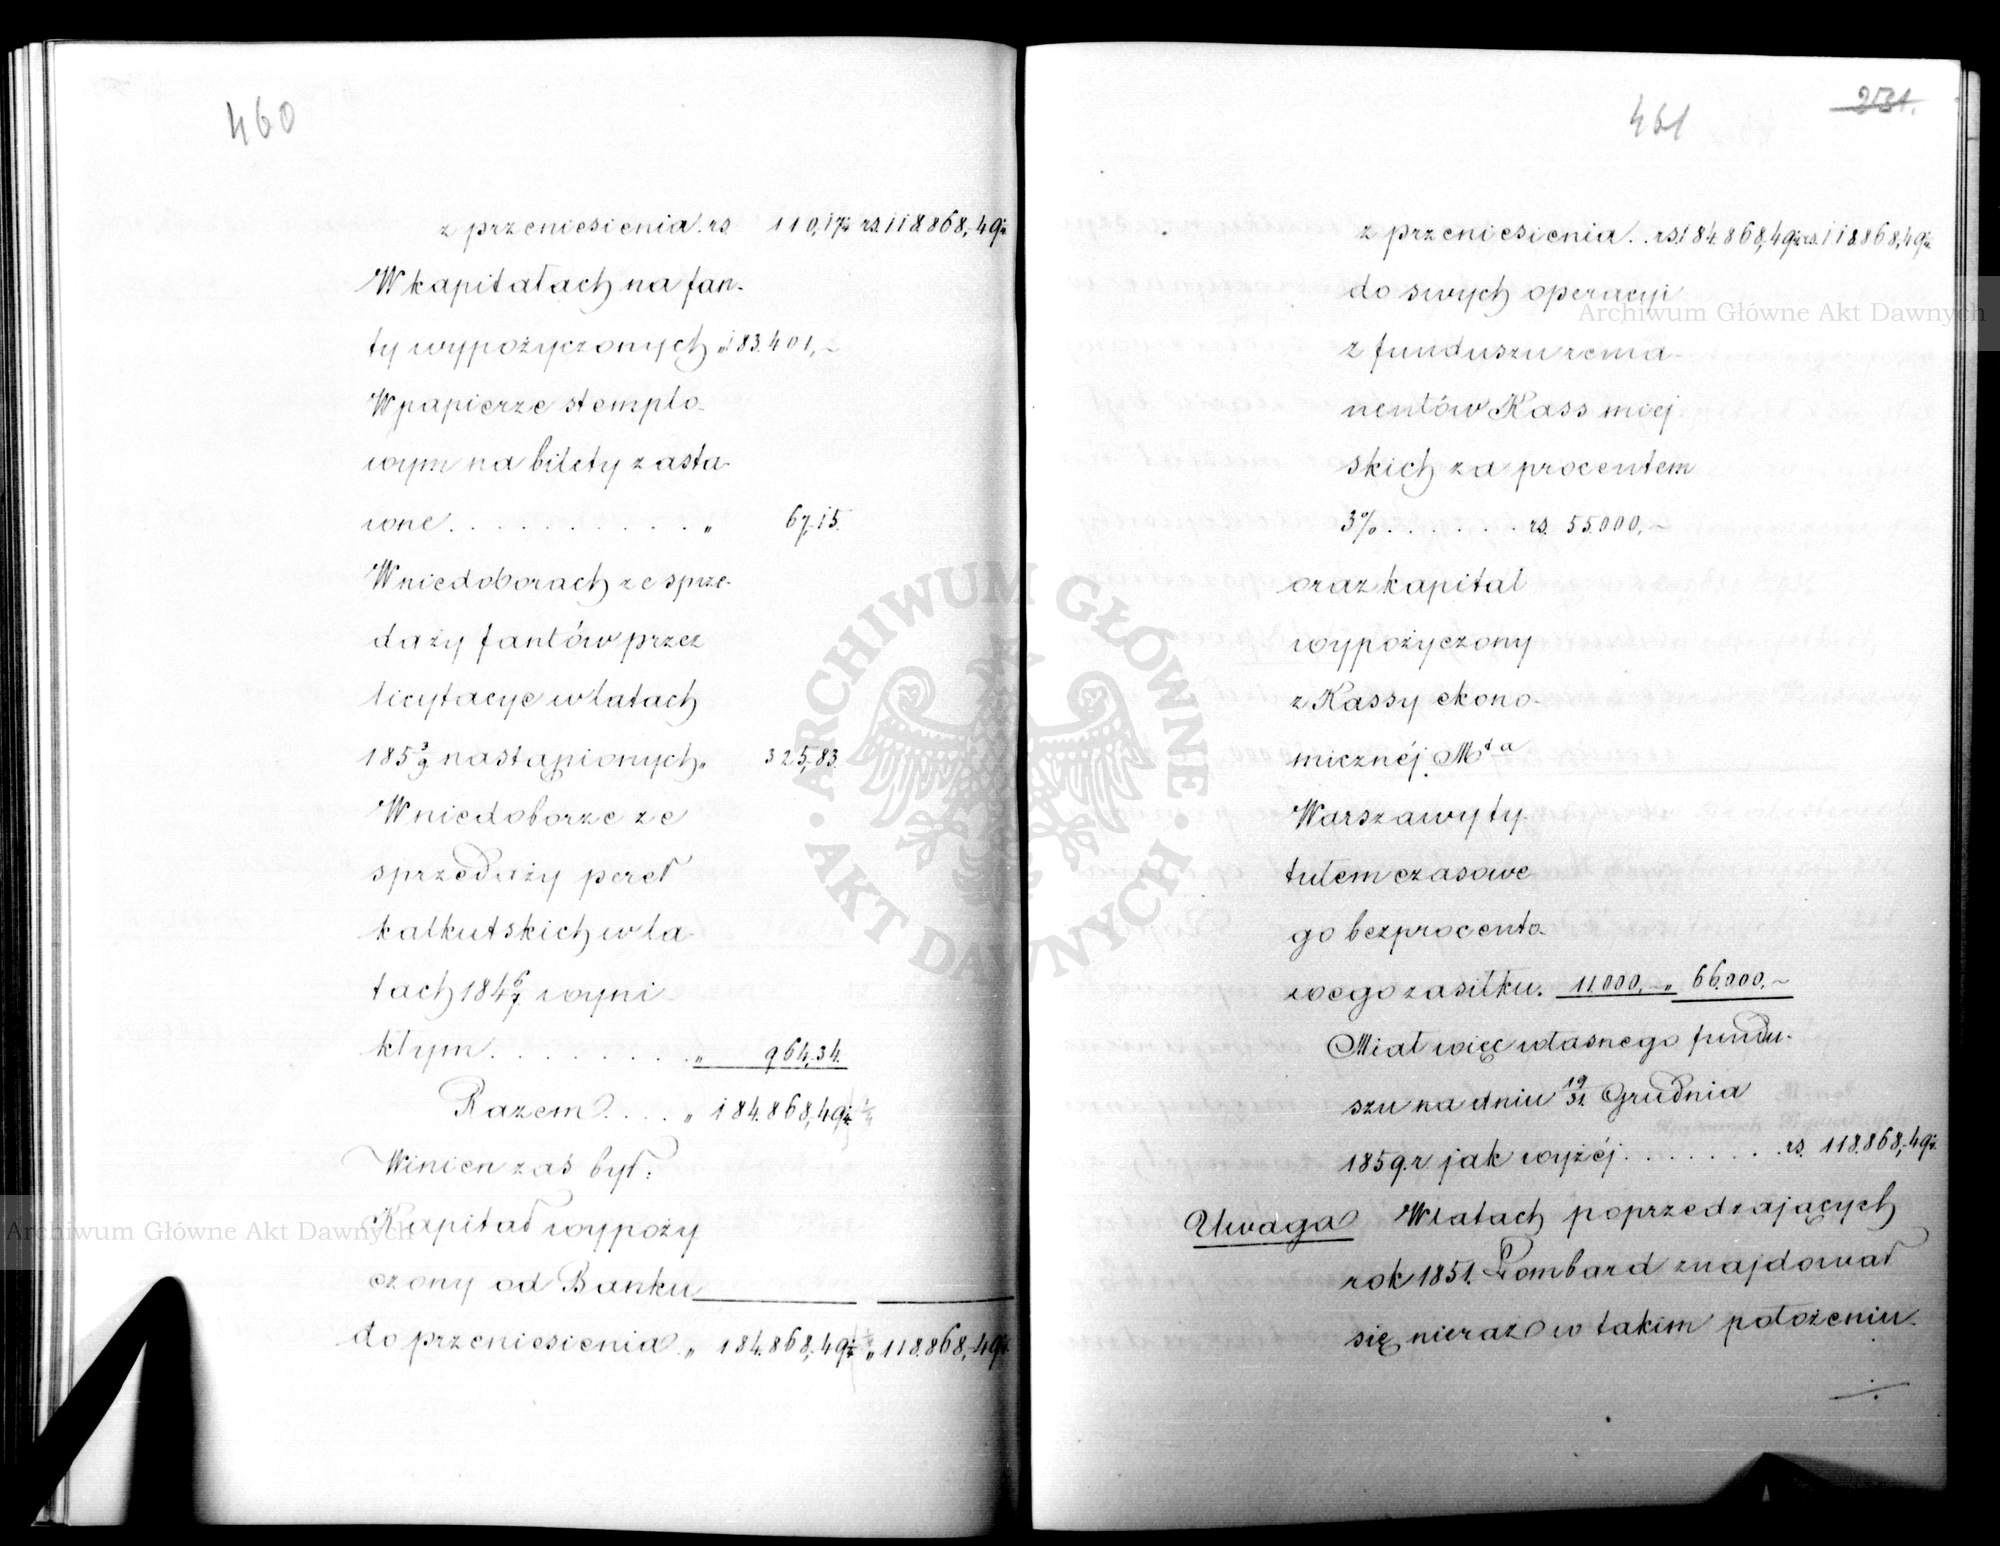 460
z przeniesienia. rs. 110,17½ rs. 118.868,49½
W kapitałach na fan-
ty wypożyczonych „ 183.401,~
W papierze stemplo-
wym na bilety zasta-
wne . . . . . . . . . . . . „ 67,15.
W niedoborach ze sprze-
daży fantów przez
licytacye w latach
185 3/9 nastąpionych „ 325,83.
W niedoborze ze
sprzedaży pereł
kalkutskich w la-
tach 184 6/7 wyni-
kłym . . . . . . . . . „ 964,34.
Razem . . . . „ 184.868,49½
Winien zaś był:
Kapitał wypoży
czony od Banku
do przeniesienia. „ 184.868,49½ „ 118.868,49½
461
251.
z przeniesienia . . rs. 184.868,49½ rs. 118.868,49½
do swych operacyi
z funduszu rema-
nentów Kass miej
skich za procentem
3% . . . . . . . rs. 55.000,~
oraz kapitał
wypożyczony
z Kassy ekono-
micznéj Mta
Warszawy ty-
tułem czasowe
go bezprocento-
wego zasiłku. 11.000,~ „ 66.000,~
Miał więc własnego fundu-
szu na dniu 19/31 Grudnia
1859.r jak wyżéj . . . . . . . . rs. 118.868,49½
Uwaga W latach poprzedzających
rok 1851. Lombard znajdował
się nieraz w takim położeniu.
Archiwum Główne Akt Dawnych
Archiwum Główne Akt Dawnych
ARCHIWUM GŁÓWNE
AKT DAWNYCH